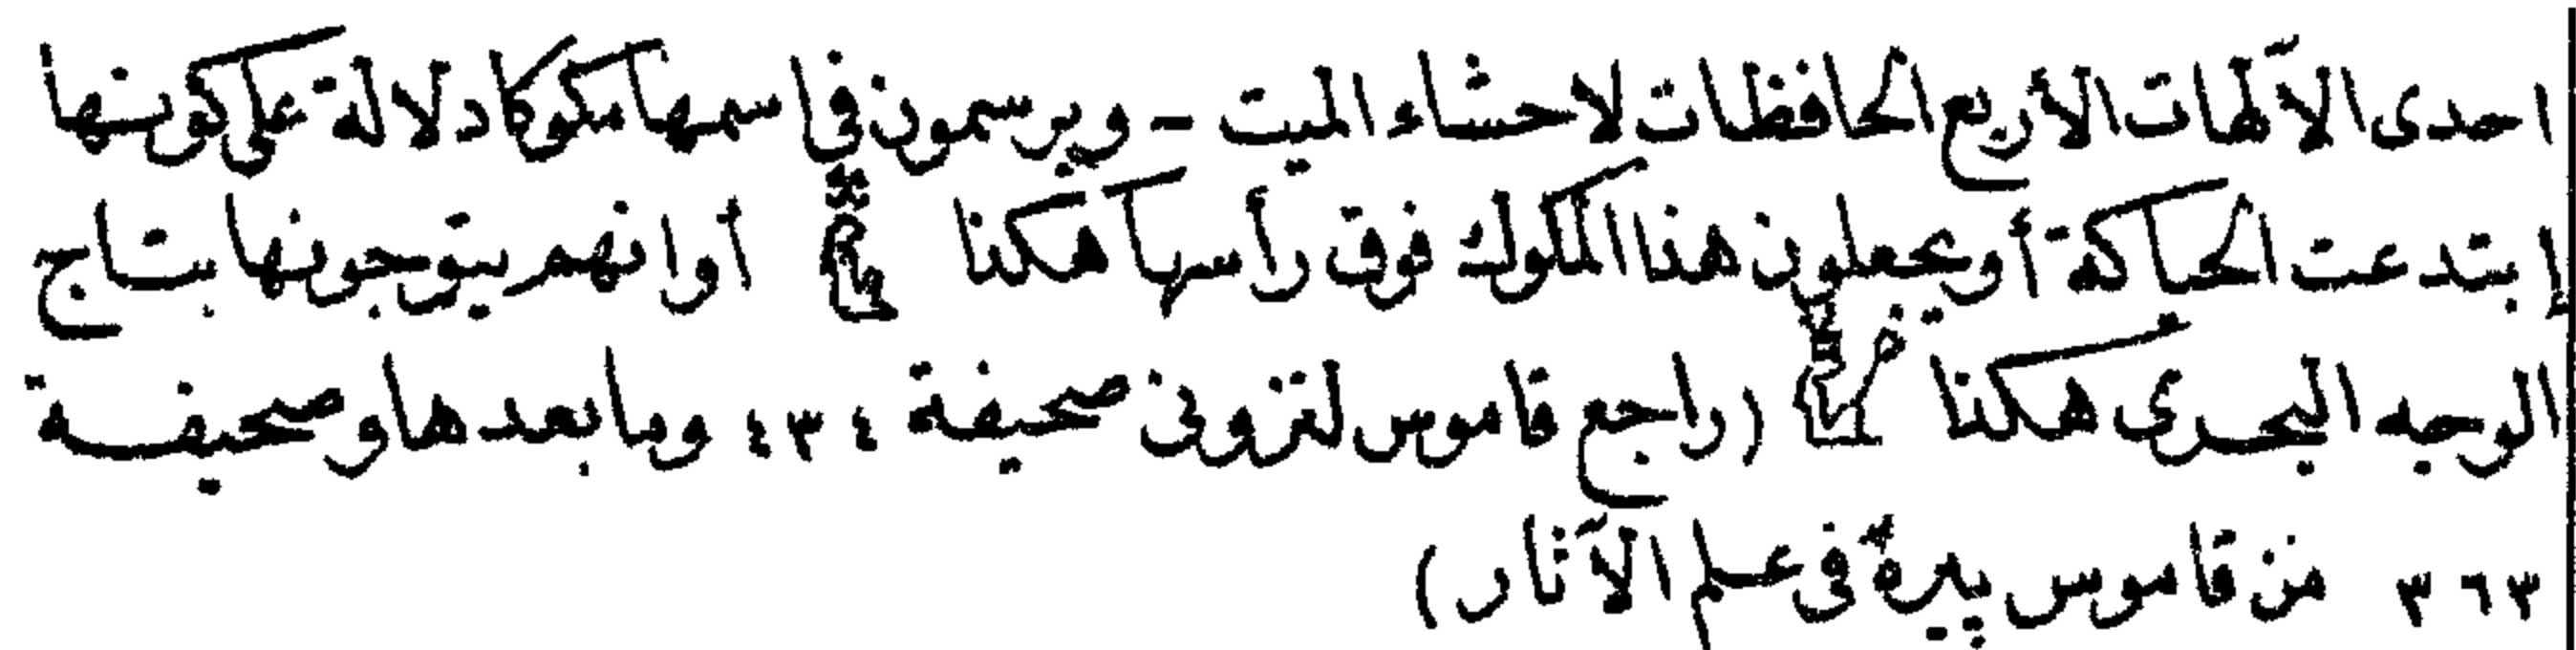 احدى الآلهات الأربع الحافظات لاحشاء الميت - ويرسمون في اسمها مكوكا دلالة على كونها
إبتدعت الحياكة أو يجعلون هذا المكوك فوق رأسها هكذا أو انهم يتوجونها بتاج
الوجه البحرى هكذا (راجع قاموس لنزونى صحيفة ٤٣٤ وما بعدها وصحيفة
٣٦٣ من قاموس پيره في علم الآثار)